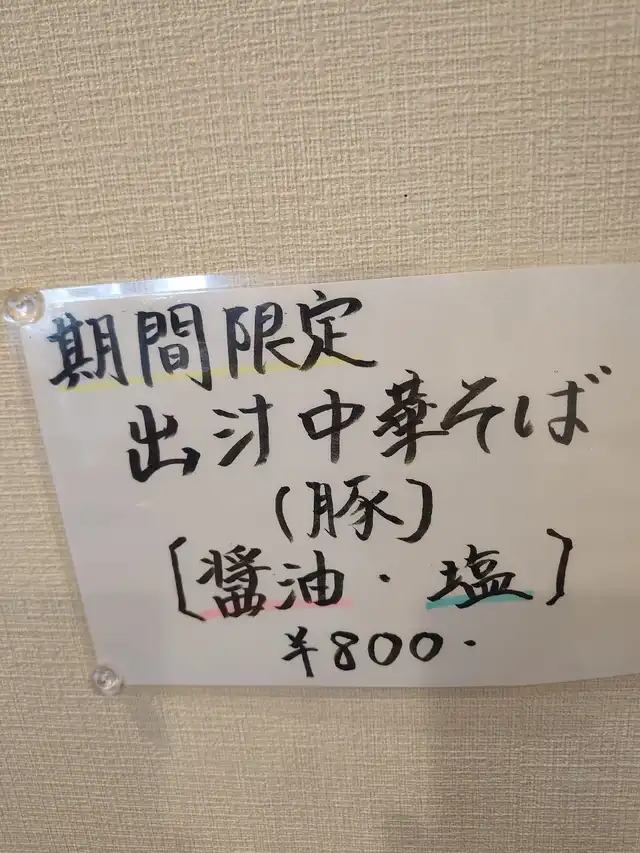 期間限定
出汁中華そば
(豚)
[醤油・塩]
¥800.